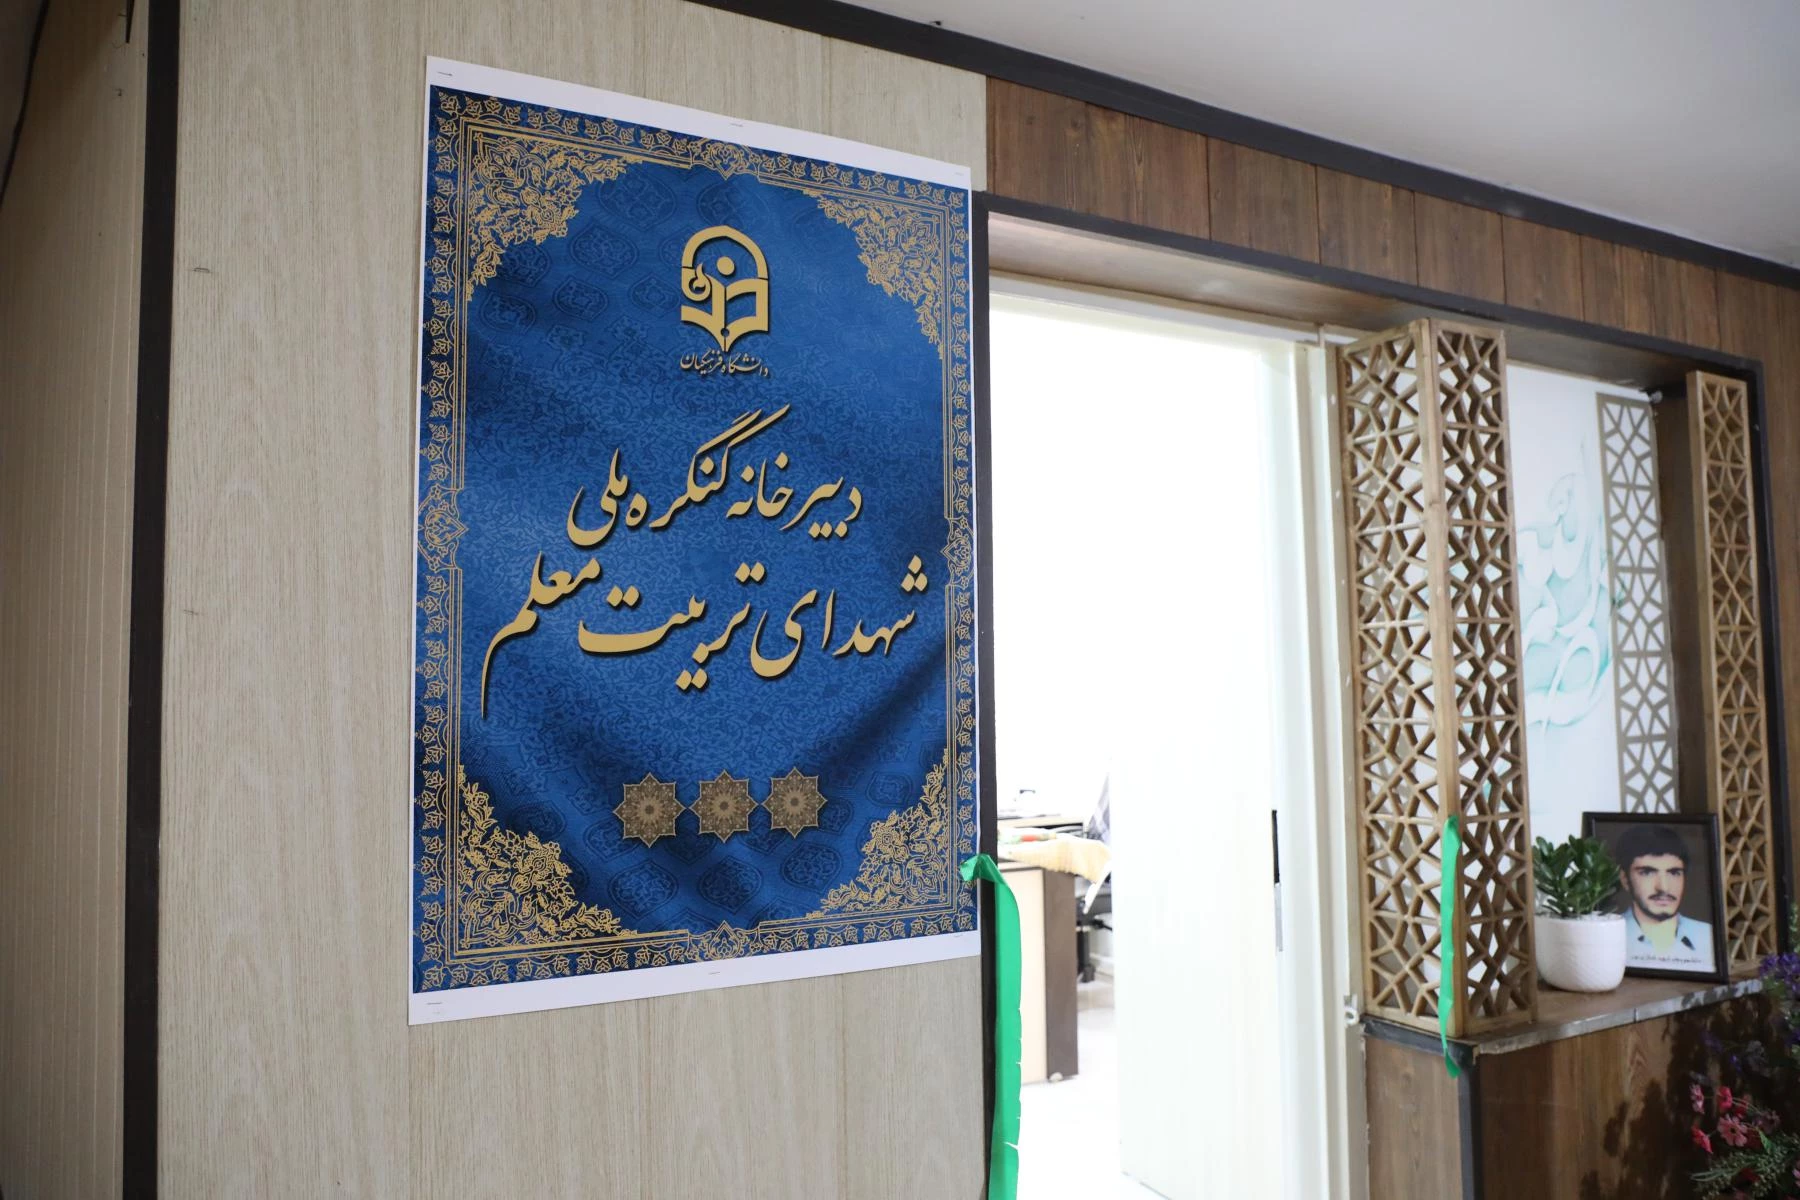 دانشگاه فرهنگیان
دبیرخانه کنگره ملی
شهدای تربیت معلم